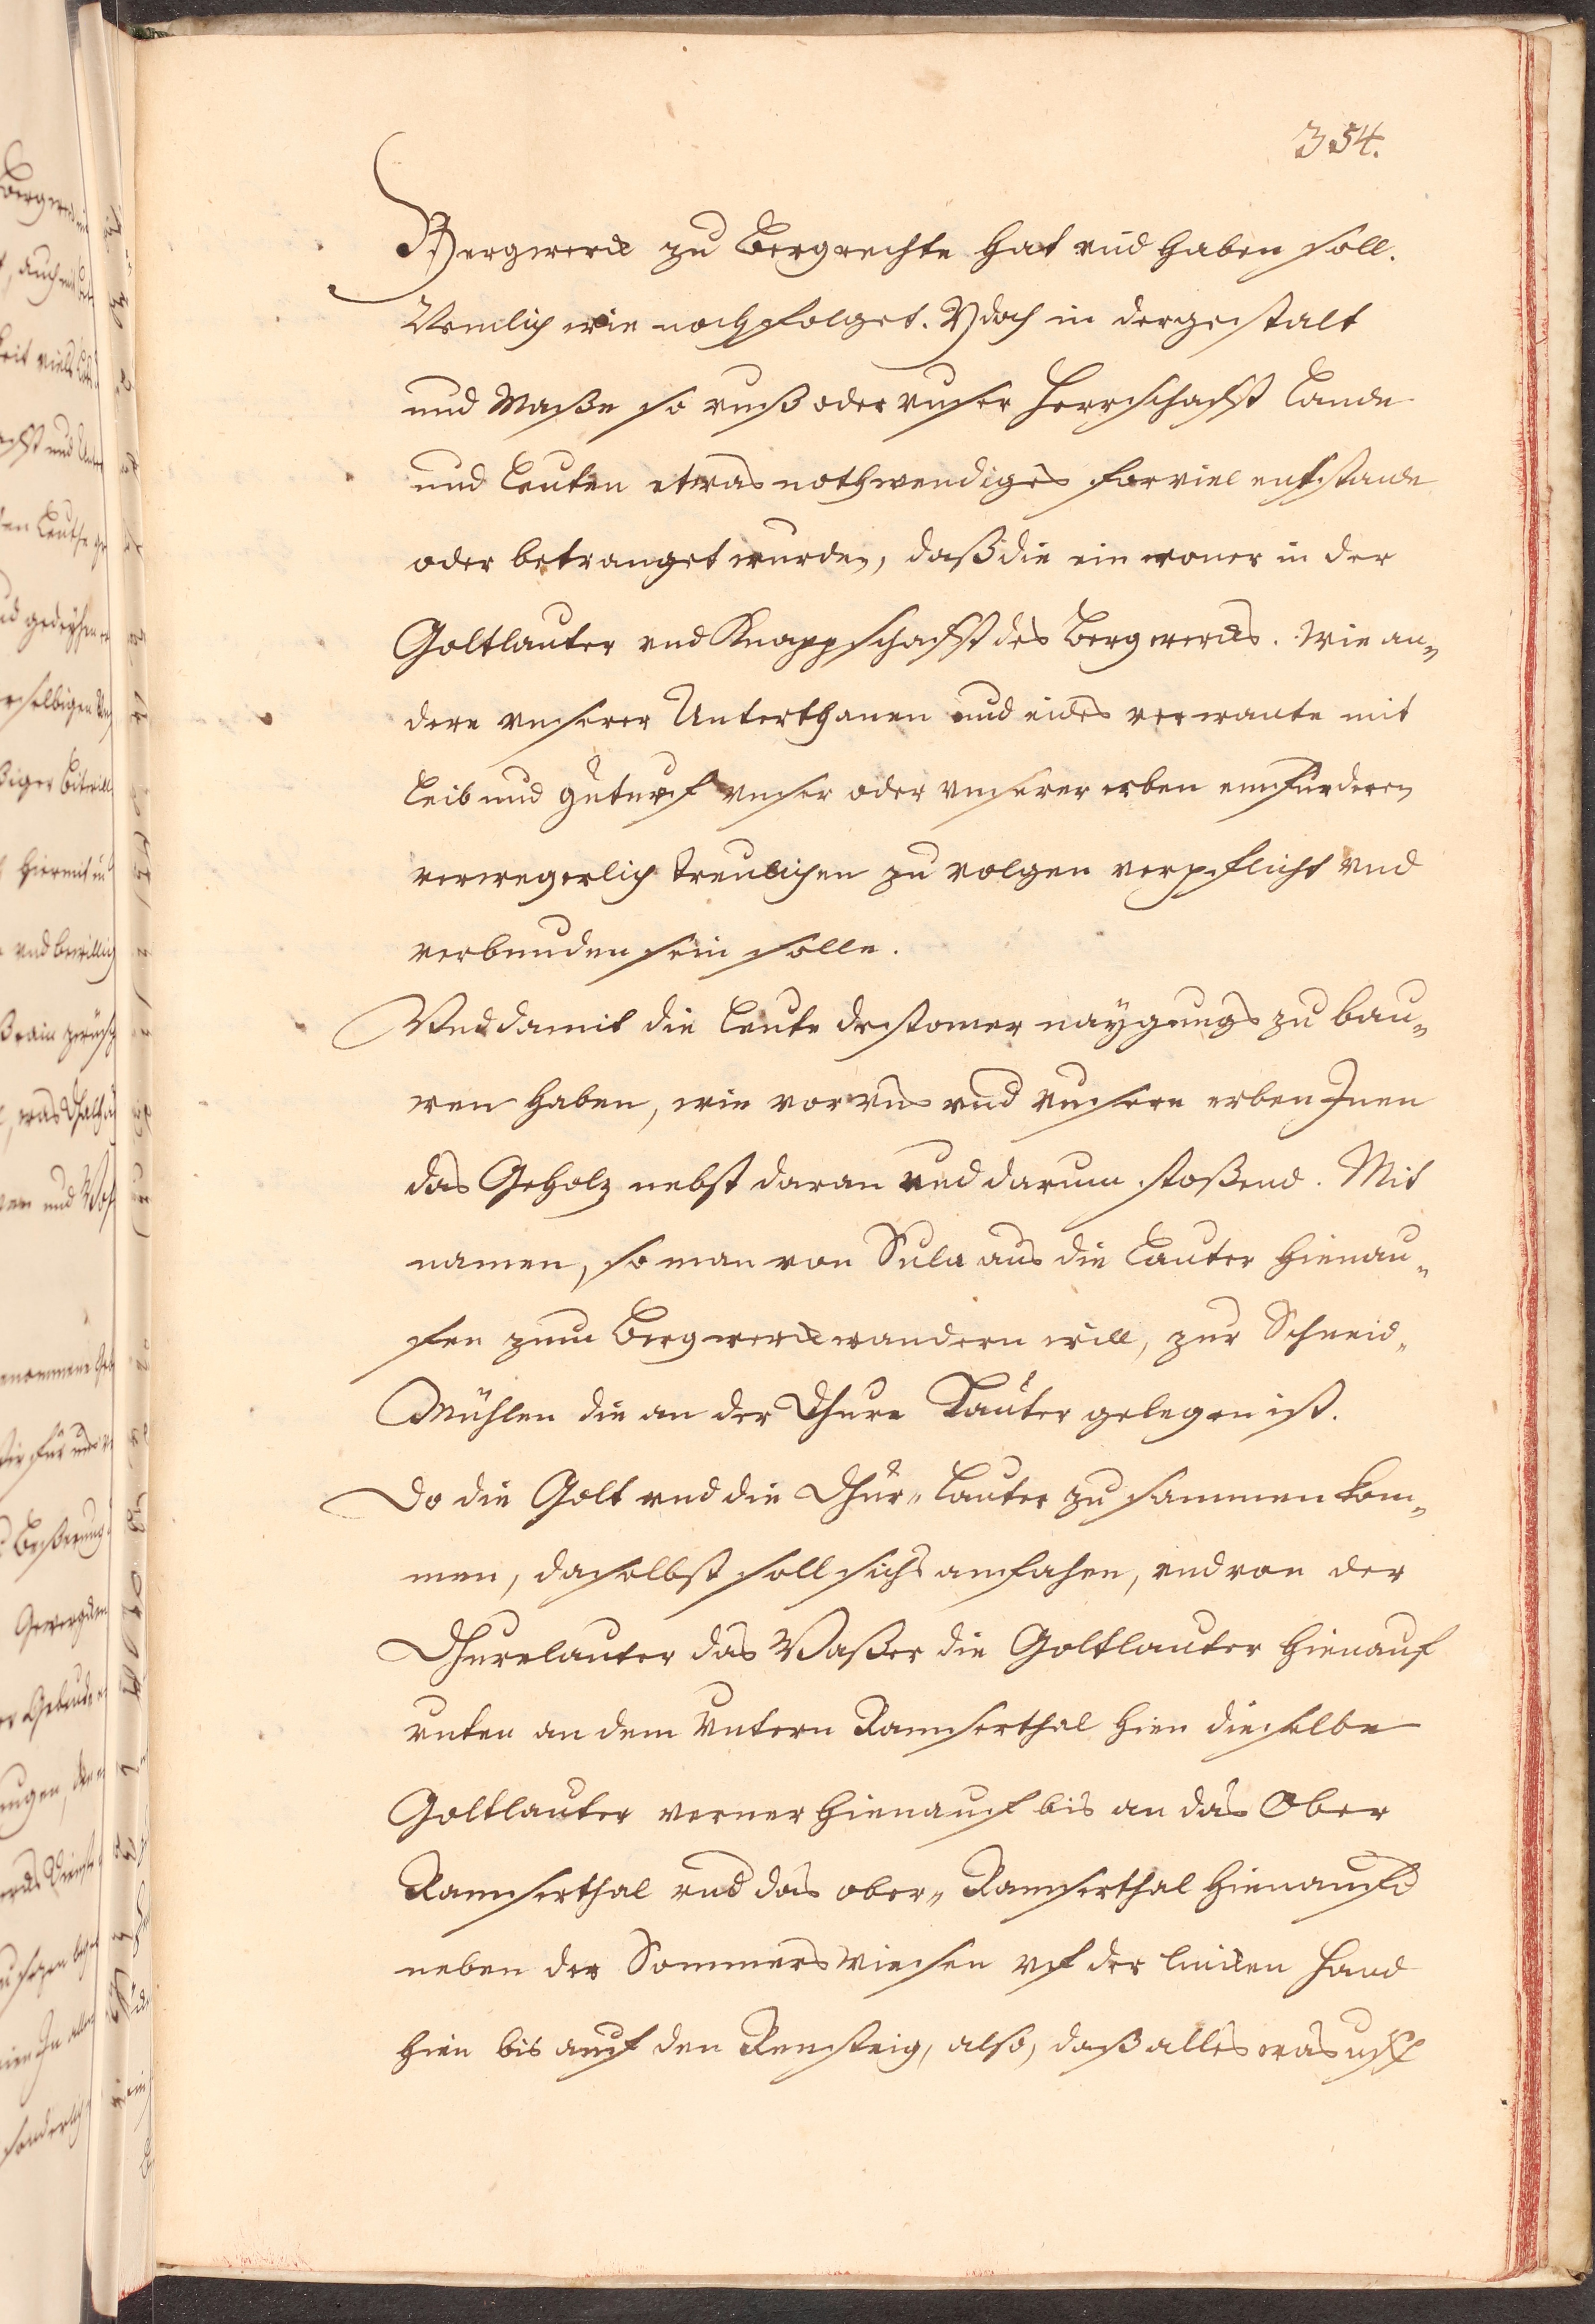 354.
Bergwerck zu Bergrechte hat vnd haben soll.
Nemlich wie nachfolget. Ydoch in dergestalt
und Maße so vnß oder vnser Herrschafft Lande
und Leuten etwas nothwendiges furviel entstande
oder betranget wurden, daß die einwoner in der
Goltlauter vnd Knappschafft des Bergwercks. Wie an„
dere vnserer Unterthanen und eides verwante mit
Leib und gut uf vnser oder vnserer erben
verwegerlich treulichen zu volgen verpflicht vnd
verbunden sein solle.
Vnd damit die Leute destomer naÿgungs zu bau„
wen haben, wie vor vns vnd vnsere erben Inen
das Geholz nebst daran vnd darum stoßend. Mit
namen, so man von Sula aus die Lauter hienau„
fen zum Bergwerck wandern will, zur Schneid„
Mühlen die an der Dhure Lauter gelegen ist.
Do die Golt vnd die Dhur„ Lauter zusammen kom„
men, daselbst soll sichs anfahen, vnd von der
Dhurelauter das Waßer die Goltlauter hienauf
vnten an dem Vntern Ramserthal hien dieselbe
Goltlauter verner hienauf bis an das Ober
Ramserthal vnd das ober„ Ramserthal hienauf
neben der Sommerswiesen vf der lincken Hand
hien bis auf den Rensteig, also, daß alles was uff